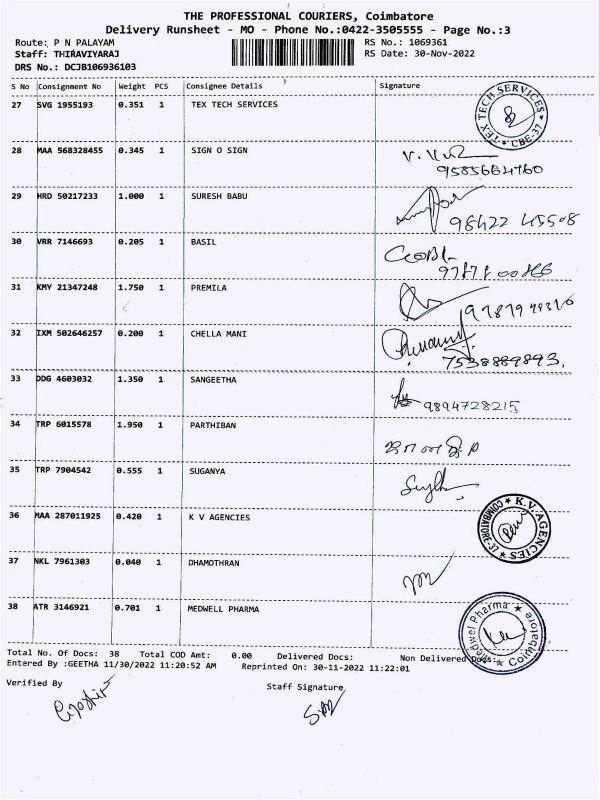 THE PROFESSIONAL COURIERS, Coimbatore
Delivery Runsheet - MO - Phone No.:0422-3505555 - Page No.:3
Route: P N PALAYAM RS No.: 1069361
Staff: THIRAVIYARAJ RS Date: 30-Nov-2022
DRS No.: DCJB106936103
S No Consignment No Weight PCS Consignee Details Signature
27 SVG 1955193 0.351 1 TEX TECH SERVICES TEX TECH SERVICES * CBE-37 *
28 MAA 568328455 0.345 1 SIGN O SIGN
9585664760
29 HRD 50217233 1.000 1 SURESH BABU
98422 45508
30 VRR 7146693 0.205 1 BASIL
31 KMY 21347248 1.750 1 PREMILA
32 IXM 502646257 0.200 1 CHELLA MANI
7538889893.
33 DDG 4603032 1.350 1 SANGEETHA 9894728215
34 TRP 6015578 1.950 1 PARTHIBAN
35 TRP 7904542 0.555 1 SUGANYA
36 MAA 287011925 0.420 1 K V AGENCIES ★ K.V. AGENCIES ★
37 NKL 7961303 0.040 1 DHAMOTHRAN
38 ATR 3146921 0.701 1 MEDWELL PHARMA Medwel Pharma * Coimbatore
Total No. Of Docs: 38 Total COD Amt: 0.00 Delivered Docs: Non Delivered Docs:
Entered By :GEETHA 11/30/2022 11:20:52 AM Reprinted On: 30-11-2022 11:22:01
Verified By Staff Signature